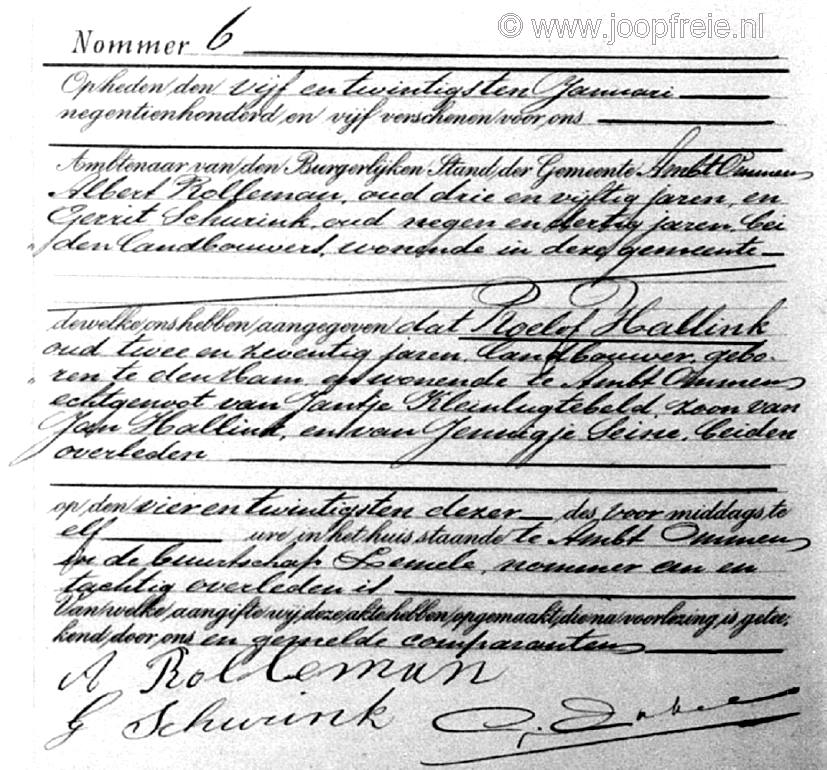 © www.joopfreie.nl
Nommer 6
Op heden den vijf en twintigsten Januari
negentienhonderd en vijf verschenen voor ons
Ambtenaar van den Burgerlijken Stand der Gemeente Ambt Ommen
Albert Rolleman, oud drie en vijftig jaren, en
Gerrit Schurink, oud negen en dertig jaren, bei
den landbouwers, wonende in deze gemeente
dewelke ons hebben aangegeven dat Roelof Hallink
oud twee en zeventig jaren, landbouwer, gebo-
ren te den Ham, en wonende te Ambt Ommen,
echtgenoot van Jantje Kleinlugtebeld, zoon van
Jan Hallink, en van Jennigje Seine, beiden
overleden
op den vier en twintigsten dezer des voor middags te
elf ure in het huis staande te Ambt Ommen,
in de buurtschap Lemele, nommer en
tachtig overleden is
Van welke aangifte wij deze akte hebben opgemaakt, die na voorlezing is getee-
kend door ons en gemelde comparanten
A Rolleman
G Schurink